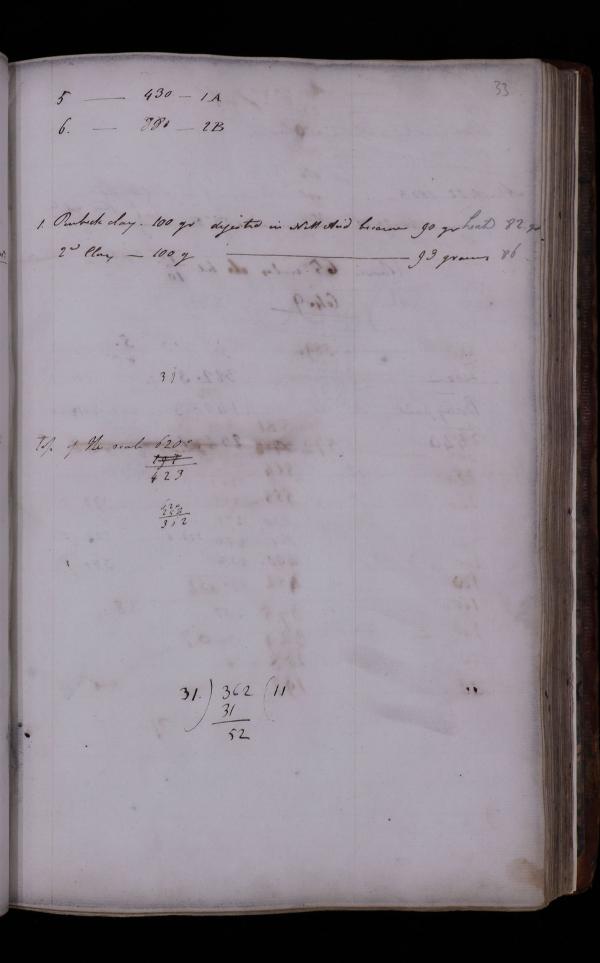 33
5 — 430 — 1A
6. — 880 — 2B
1. Purbeck clay. 100 gr digested in Nitt Acid became 90 gr heat 82 gr
2d Clay — 100 g ——— 93 grains 86
31
Top of the scale 620
197
423
312
31.) 362 (11
31
52